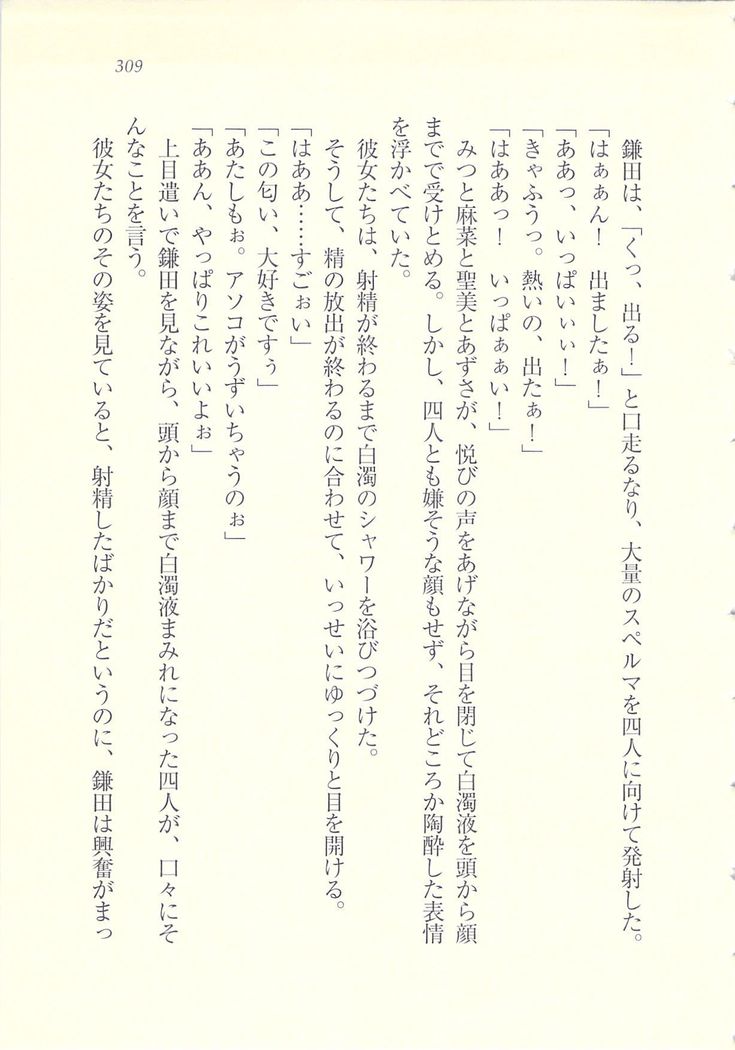 309
鎌田は、「くっ、出る！」と口走るなり、大量のスペルマを四人に向けて発射した。
「はぁぁん！　出ましたぁ！」
「ああっ、いっぱいぃぃ！」
「きゃふうっ。熱いの、出たぁ！」
「はああっ！　いっぱぁぁい！」
みつと麻菜と聖美とあずさが、悦びの声をあげながら目を閉じて白濁液を頭から顔
までで受けとめる。しかし、四人とも嫌そうな顔もせず、それどころか陶酔した表情
を浮かべていた。
彼女たちは、射精が終わるまで白濁のシャワーを浴びつづけた。
そうして、精の放出が終わるのに合わせて、いっせいにゆっくりと目を開ける。
「はああ……すごぉい」
「この匂い、大好きですぅ」
「あたしもぉ。アソコがうずいちゃうのぉ」
「ああん、やっぱりこれいいよぉ」
上目遣いで鎌田を見ながら、頭から顔まで白濁液まみれになった四人が、口々にそ
んなことを言う。
彼女たちのその姿を見ていると、射精したばかりだというのに、鎌田は興奮がまっ